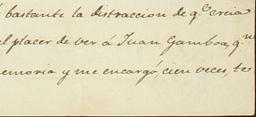 bastante la distraccion de q.e creia
el placer de ver á Juan Gamboa, q.n
emoria y me encargó, cien veces, te